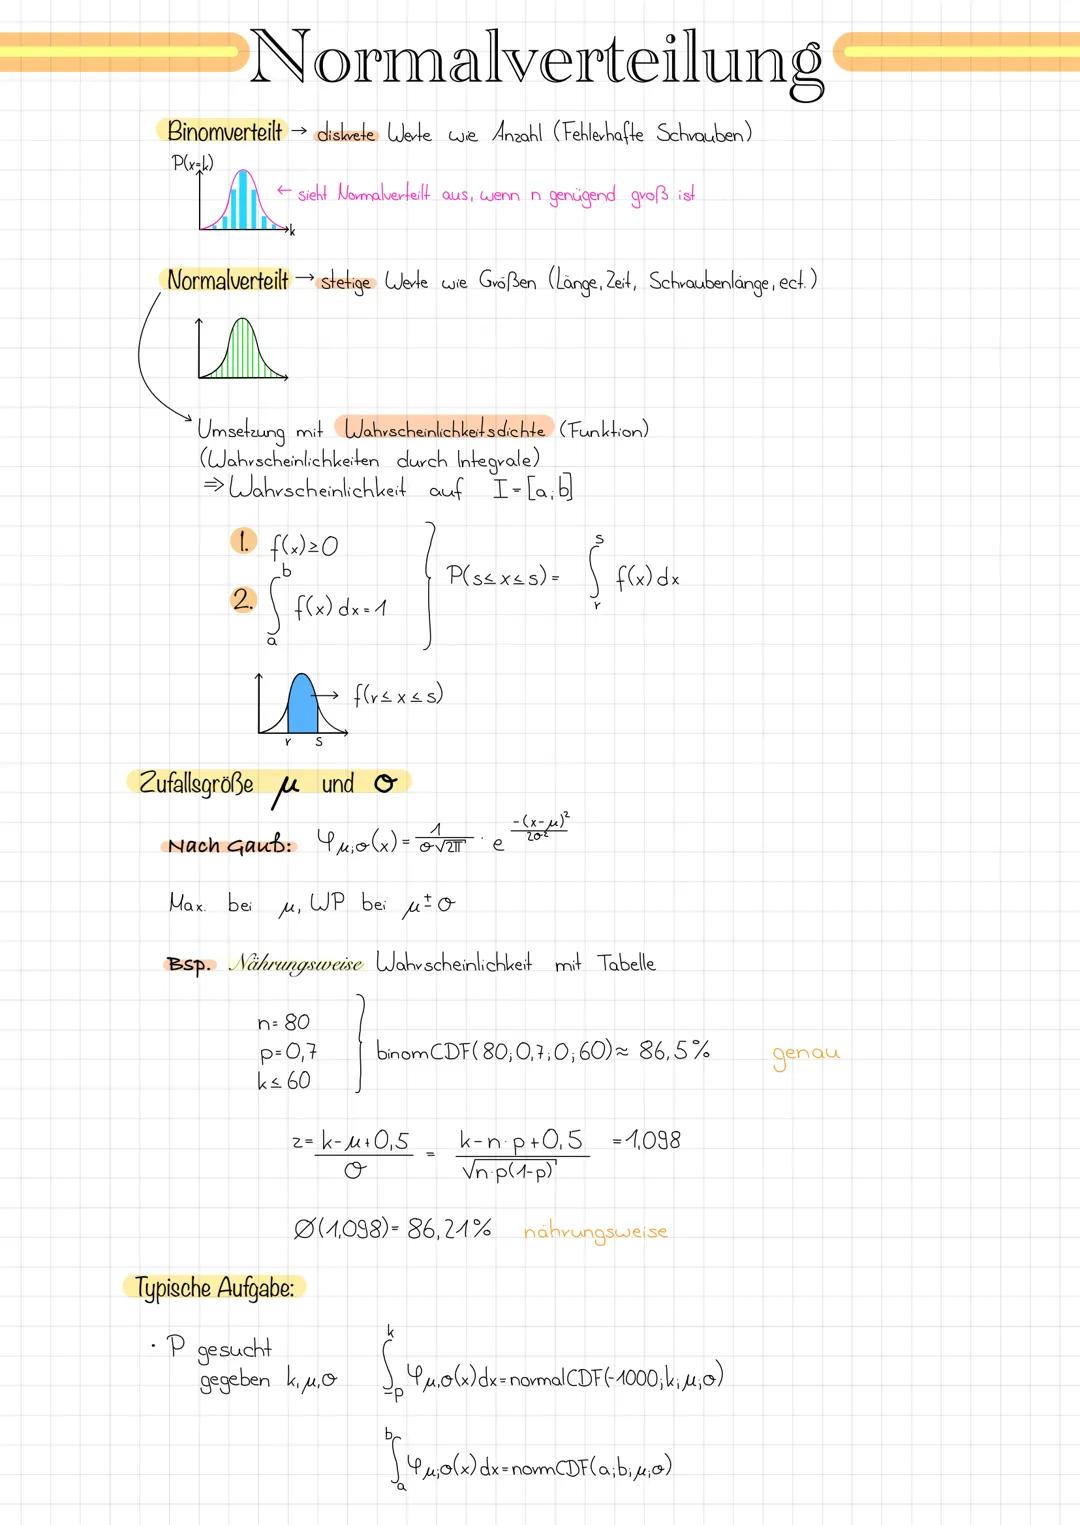 Normalverteilung
Binomverteilt → diskrete Werte wie Anzahl (Fehlerhafte Schrauben)
P(x=k)
← sieht Normalverteilt aus, wenn n genügend groß ist
k
Normalverteilt → stetige Werte wie Größen (Länge, Zeit, Schraubenlänge, ect.)
Umsetzung mit Wahrscheinlichkeitsdichte (Funktion)
(Wahrscheinlichkeiten durch Integrale)
⇒ Wahrscheinlichkeit auf I=[a;b]
1. f(x)≥0
2. ∫_a^b f(x) dx = 1
P(s≤x≤s) = ∫_r^s f(x) dx
→ f(r≤x≤s)
r s
Zufallsgröße μ und σ
Nach Gauß: φμ;σ(x) = 1/(σ√2π) · e^(-(x-μ)²/2σ²)
Max. bei μ, WP bei μ±σ
Bsp. Nährungsweise Wahrscheinlichkeit mit Tabelle
n=80
p=0,7
k≤60
binomCDF(80;0,7;0;60)≈ 86,5% genau
z= (k-μ+0,5)/σ = (k-n·p+0,5)/√(n·p(1-p)) =1,098
Ø(1,098)= 86,21% nährungsweise
Typische Aufgabe:
· P gesucht
gegeben k,μ,σ
∫_{=p}^k φμ,σ(x)dx=normalCDF(-1000;k;μ;σ)
∫_a^b φμ;σ(x)dx=normCDF(a;b;μ;σ)